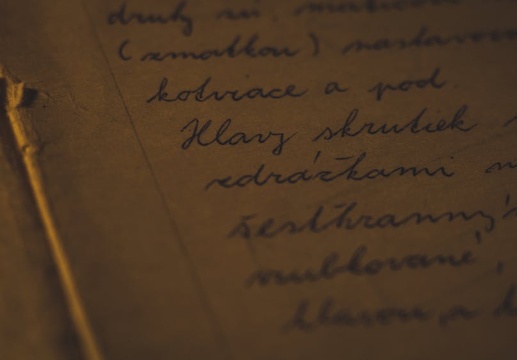 druhy sú: maticové
(zmatkou) nastavova
kotviace a pod.
Hlavy skrutiek
zdrážkami
šesthranný
vrubkované,
hlavou, a